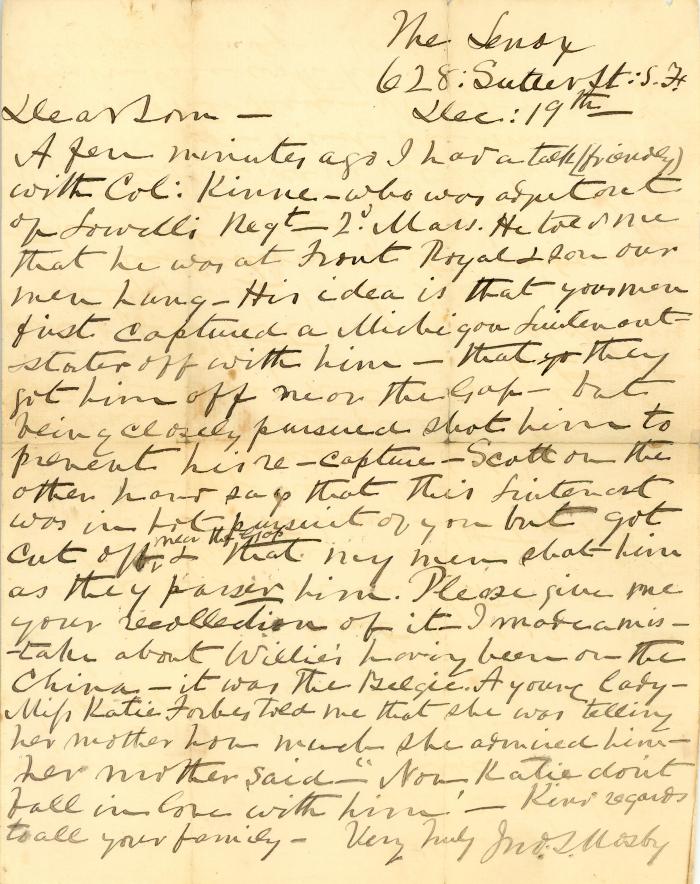 The Lenox
628: Sutter St: S. F.
Dec: 19th
Dear Sam –
A few minutes ago I had a talk (friendly)
with Col: Kinne – who was adjutant
of Lowell's Regt – 2d. Mass. He told me
that he was at Front Royal & saw our
men hung – His idea is that your men
first captured a Michigan Lieutenant –
started off with him – that they
got him off near the Gap – but
being closely pursued shot him to
prevent his re-capture – Scott on the
other hand says that this Lieutenant
was in hot pursuit of you but got
cut off near the Gap & that my men shot him
as they passed him. Please give me
your recollection of it – I made a mis-
-take about Willie's having been on the
China – it was the Belgic. A young lady –
Miss Katie Forbes told me that she was telling
her mother how much she admired him –
her mother said – "Now Katie don't
fall in love with him" – Kind regards
to all your family – Very Truly Jno. S. Mosby